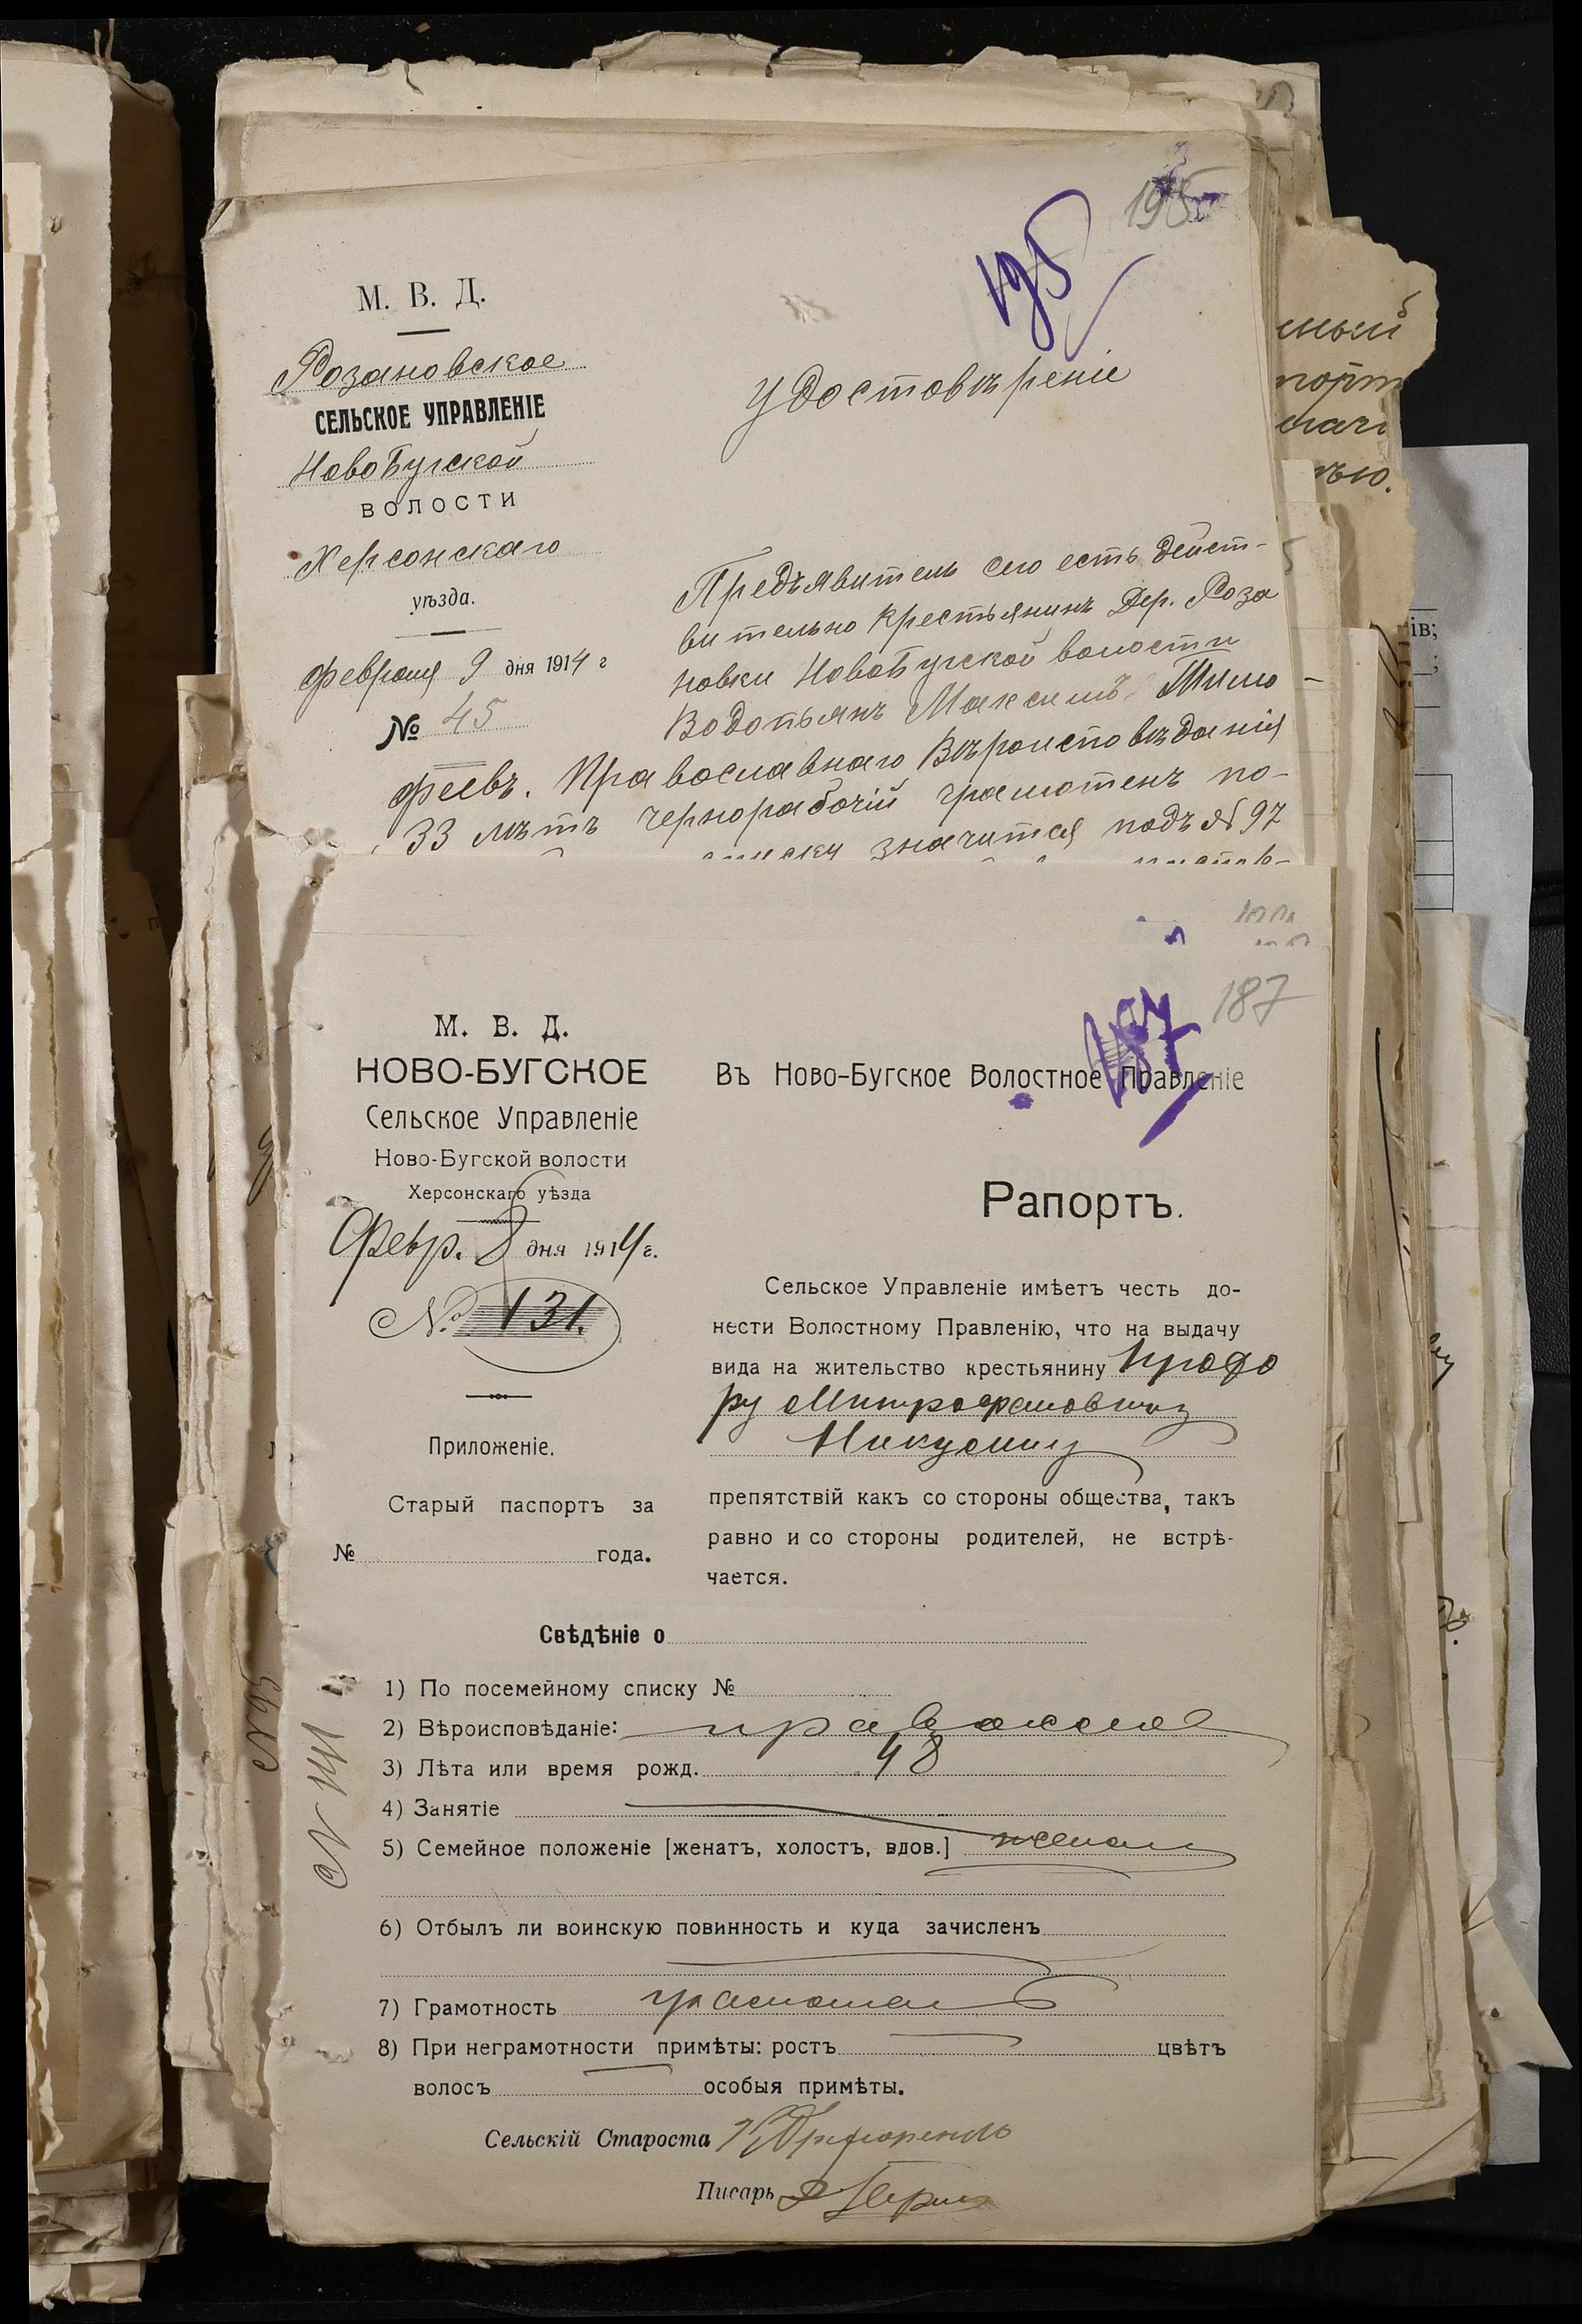 195
195
М. В. Д.
Розановское
СЕЛЬСКОЕ УПРАВЛЕНІЕ
НовоБугской
ВОЛОСТИ
Херсонскаго
уѣзда.
февраля 9 дня 1914 г
№ 45
Удостовѣреніе
Предъявитель сего есть дейст-
вительно крестьянинъ Дер. Роза
новки НовоБугской волости
Водотыянъ Максимъ Тимо-
феевъ. Православнаго Вѣроисповѣданія
33 лѣтъ чернорабочій грамотенъ по-
списку значится подъ № 97
ный
порт
ѣю.
ів;
187
187
М. В. Д.
НОВО-БУГСКОЕ
Сельское Управленіе
Ново-Бугской волости
Херсонскаго уѣзда
Февр. 8 дня 1914 г.
№ 131.
Приложеніе.
Старый паспортъ за
№ года.
Въ Ново-Бугское Волостное Правленіе
Рапортъ.
Сельское Управленіе имѣетъ честь до-
нести Волостному Правленію, что на выдачу
вида на жительство крестьянину
ру Митрофановичу
Никулину
препятствій какъ со стороны общества, такъ
равно и со стороны родителей, не встрѣ-
чается.
Свѣдѣніе о
1) По посемейному списку №
2) Вѣроисповѣданіе: православное
3) Лѣта или время рожд. 48
4) Занятіе
5) Семейное положеніе [женатъ, холостъ, вдов.] женат
6) Отбылъ ли воинскую повинность и куда зачисленъ
7) Грамотность грамотенъ
8) При неграмотности примѣты: ростъ цвѣтъ
волосъ особыя примѣты.
Сельскій Староста
Писарь